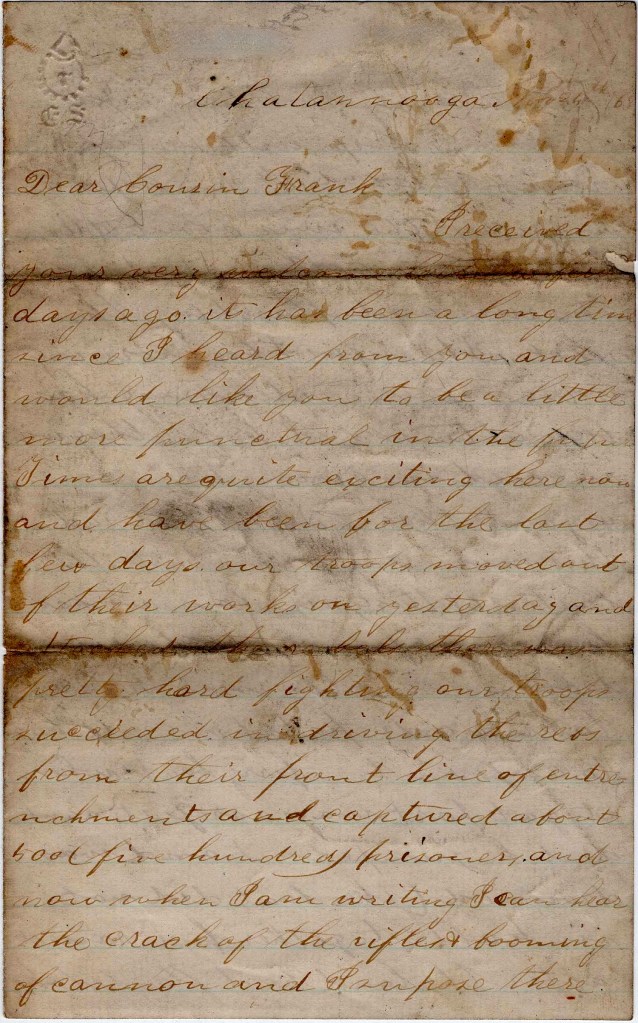 Chatannooga
Dear Cousin Frank
I received
your very welcom
days ago. it has been a long tim
since I heard from you and
would like you to be a little
more punctual in the
Times are quite exciting here now
and have been for the last
few days. our troops moved out
of their works on yesterday and
the rebels there was
pretty hard fighting our troops
succeeded in driving the rebs
from their front line of entre
nchments and captured about
500 (five hundred) prisoners. and
now when I am writing I can hear
the crack of the rifles & booming
of cannon and I supose there